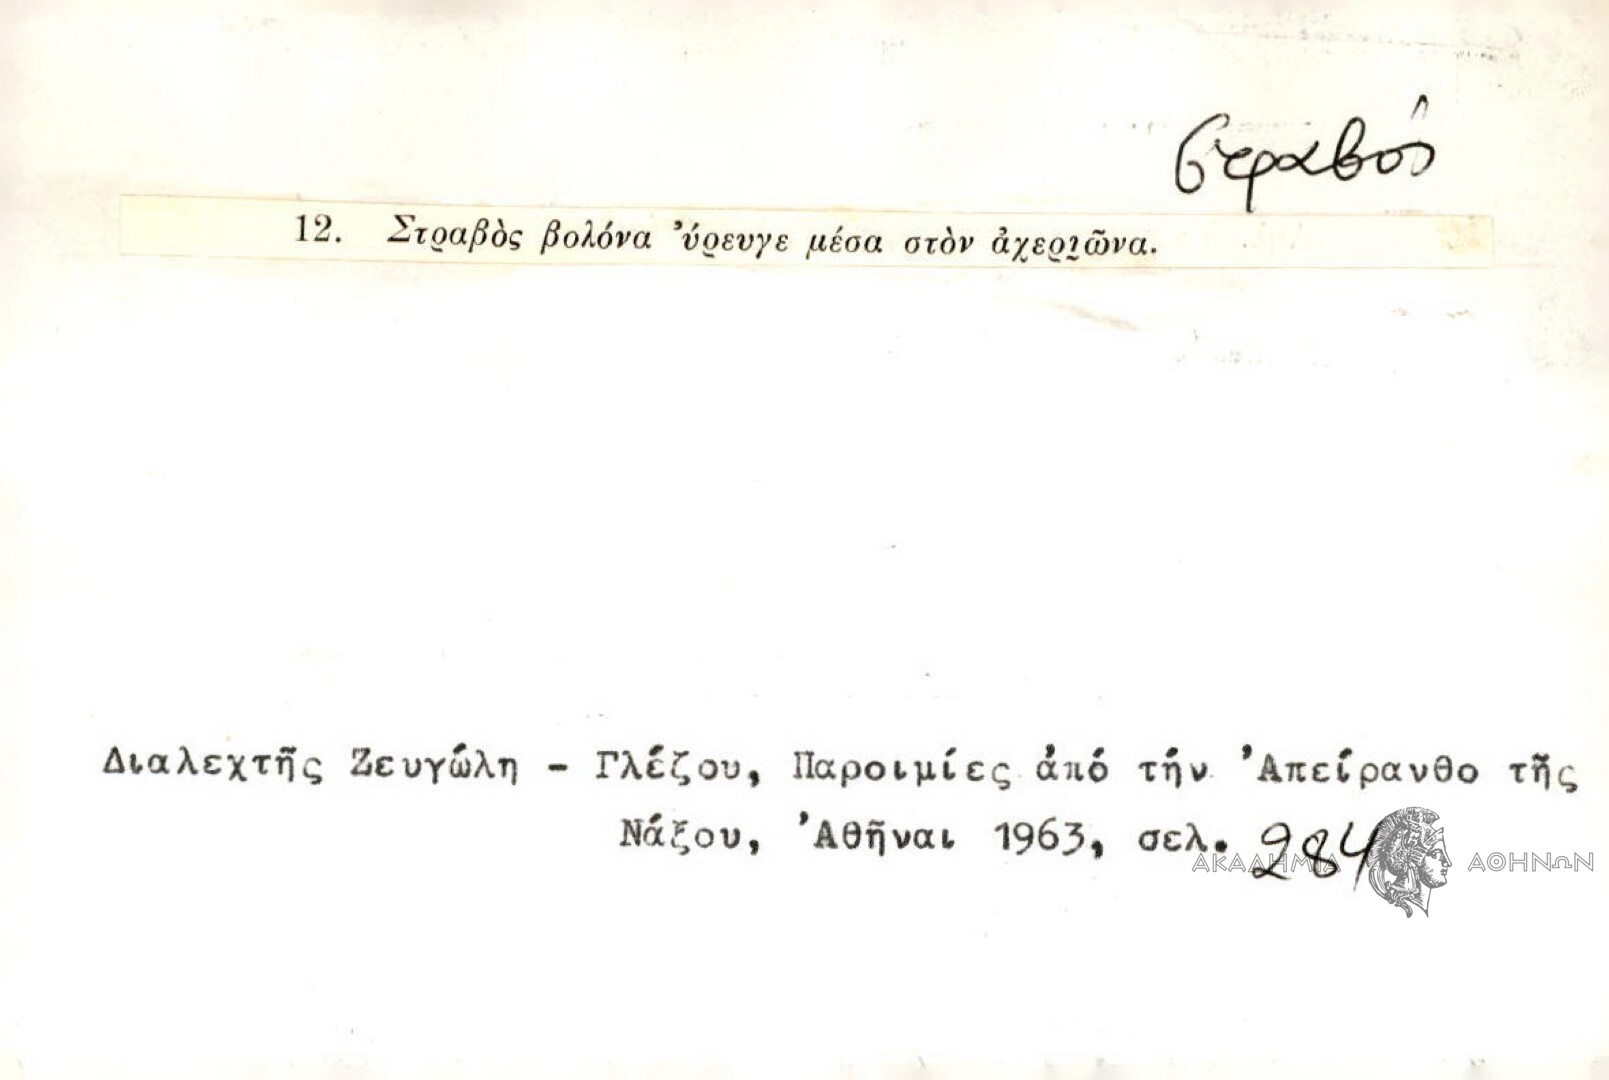 στραβός
12. Στραβὸς βολόνα 'ύρευγε μέσα στὸν ἀχερι̯ῶνα.
Διαλεχτῆς Ζευγώλη - Γλέζου, Παροιμίες ἀπό τήν 'Απείρανθο τῆς
Νάξου, 'Αθῆναι 1963, σελ. 284
ΑΚΑΔΗΜΙΑ ΑΘΗΝΩΝ